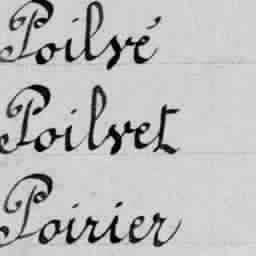 Poilvé
Poilvet
Poirier